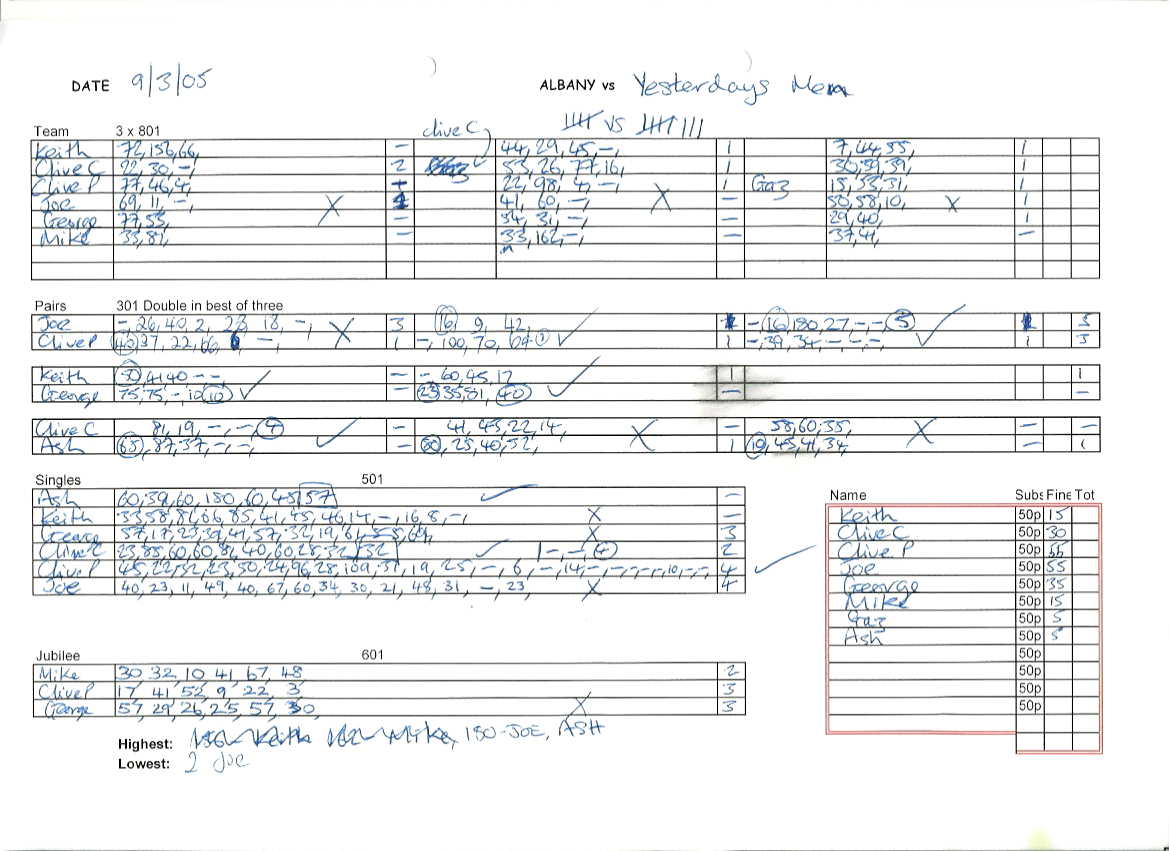 DATE 9/3/05 ALBANY vs Yesterdays Men
Team 3 x 801 Clive C vs
Keith 72,156,66, - 44, 29, 45, -, 1 7,44,55, 1
Clive C 22, 30, -, 2 53, 26, 77, 16, 1 1
Clive P 77, 46, 4, 22, 98, 4, -, 1 Gaz 15, 55, 31, 1
Joe 69, 11, -, X 41, 60, -, X - 58, 10, X 1
George 77,55, - 34, 31, -, - 29, 40, 1
Mike 33,82, - 33, 162, -, - 37,41, -
Pairs 301 Double in best of three
Joe -, 26,40,2, 18, -, X 3 16, 9, 42, - 16, 180, 27, -, - 5
Clive P 37, 22, 66 -, 1 -, 100, 70, 1 -, 39, 34, -, -, -, 1 3
Keith 50 - - - - 60, 45, 17 1 1
George 75, 75, -, 10 10 - 23, 35, 81, 40 - -
Clive C 81, 19, -, -, 4 - 41, 45, 22, 14, X - 58, 60, 35, X - -
Ash 65, 87, 37, -, -, - 80, 25, 40, 52, 1 19, 45, 41, 34, - 1
Singles 501
Ash 60, 39, 60, 180, 60, 45, 57 -
Keith 33, 58, 81, 66, 85, 41, 55, 46, 14, -, 16, 8, -, X -
George 57, 17, 23, 39, 41, 57, 32, 19, 64, 55, 60, X 3
Clive C 23, 85, 60, 60, 81, 40, 60, 28, 32, 32 1 -, -, 4 2
Clive P 45, 22, 32, 23, 50, 24, 96, 28, 109, 31, 19, 25, -, 6, -, 14, -, -, -, -, 10, -, -, 4
Joe 40, 23, 11, 49, 40, 67, 60, 34, 30, 21, 48, 31, -, 23, X 4
Name Subs Fine Tot
Keith 50p 15
Clive C 50p 30
Clive P 50p 55
Joe 50p 55
George 50p 35
Mike 50p 15
Gaz 50p 5
Ash 50p 5
50p
50p
50p
50p
Jubilee 601
Mike 30, 32, 10, 41, 67, 48 2
Clive P 17, 41, 52, 9, 22, 3 3
George 57, 29, 26, 25, 57, 30, X 3
Highest: 180-JOE, ASH
Lowest: 2 Joe